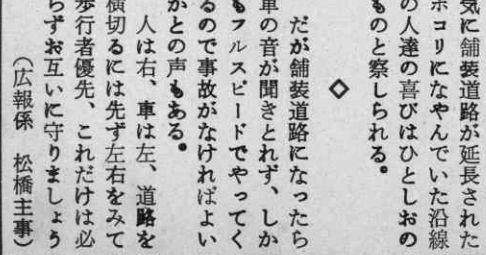 気に舗装道路が延長された
ホコリになやんでいた沿線
の人達の喜びはひとしおの
ものと察しられる。
◇
だが舗装道路になったら
車の音が聞きとれず、しか
もフルスピードでやってく
るので事故がなければよい
がとの声もある。
人は右、車は左、道路を
横切るには先ず左右をみて
歩行者優先、これだけは必
らずお互いに守りましょう
（広報係　松橋主事）